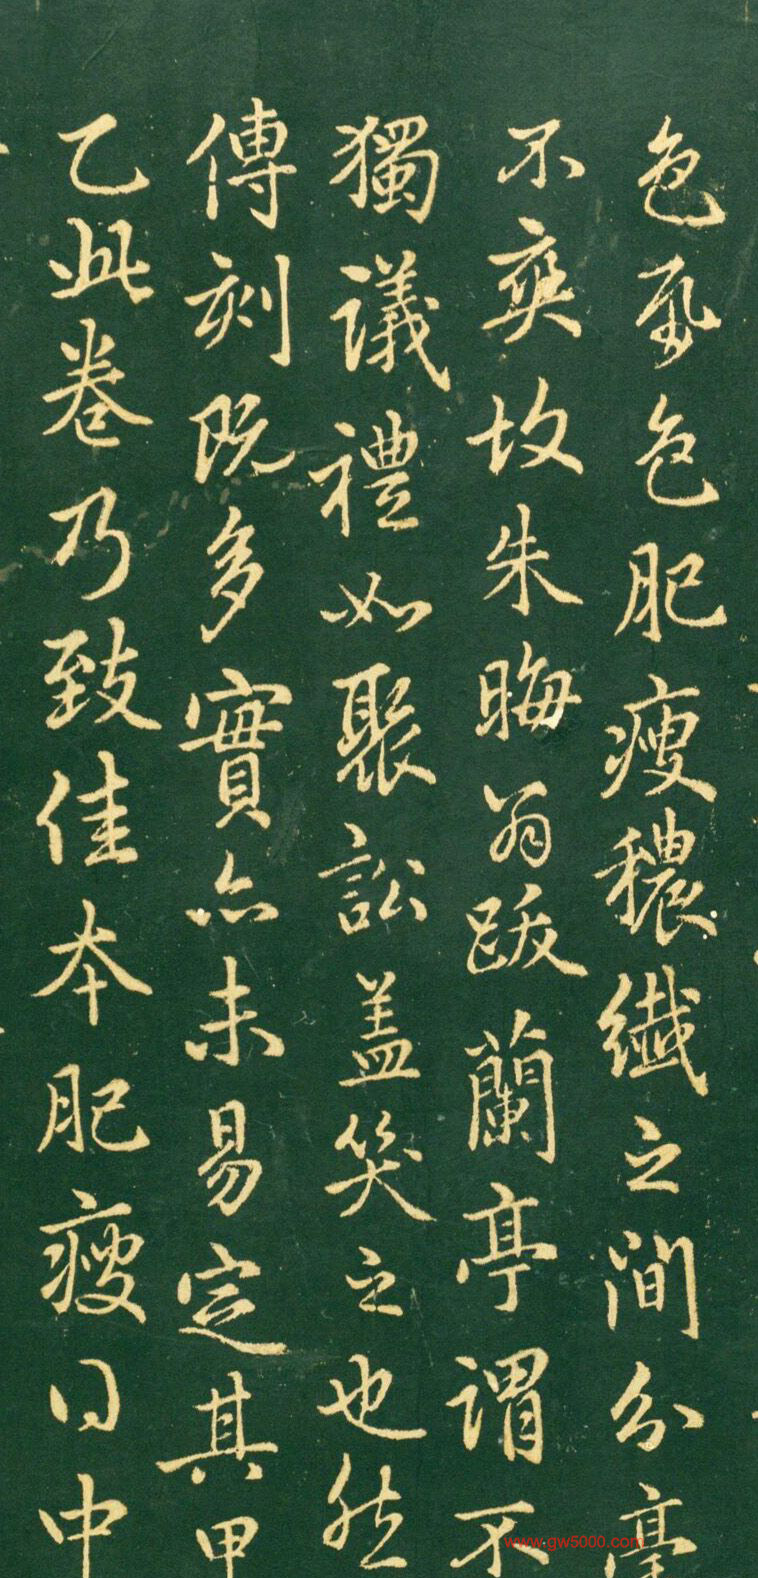 色氣色肥瘦穠纖之間分毫
不爽故朱晦翁跋蘭亭謂不
獨議禮如聚訟盖笑之也然
傳刻既多實亦未易定其甲
乙此卷乃致佳本肥瘦得中
www.gw5000.com